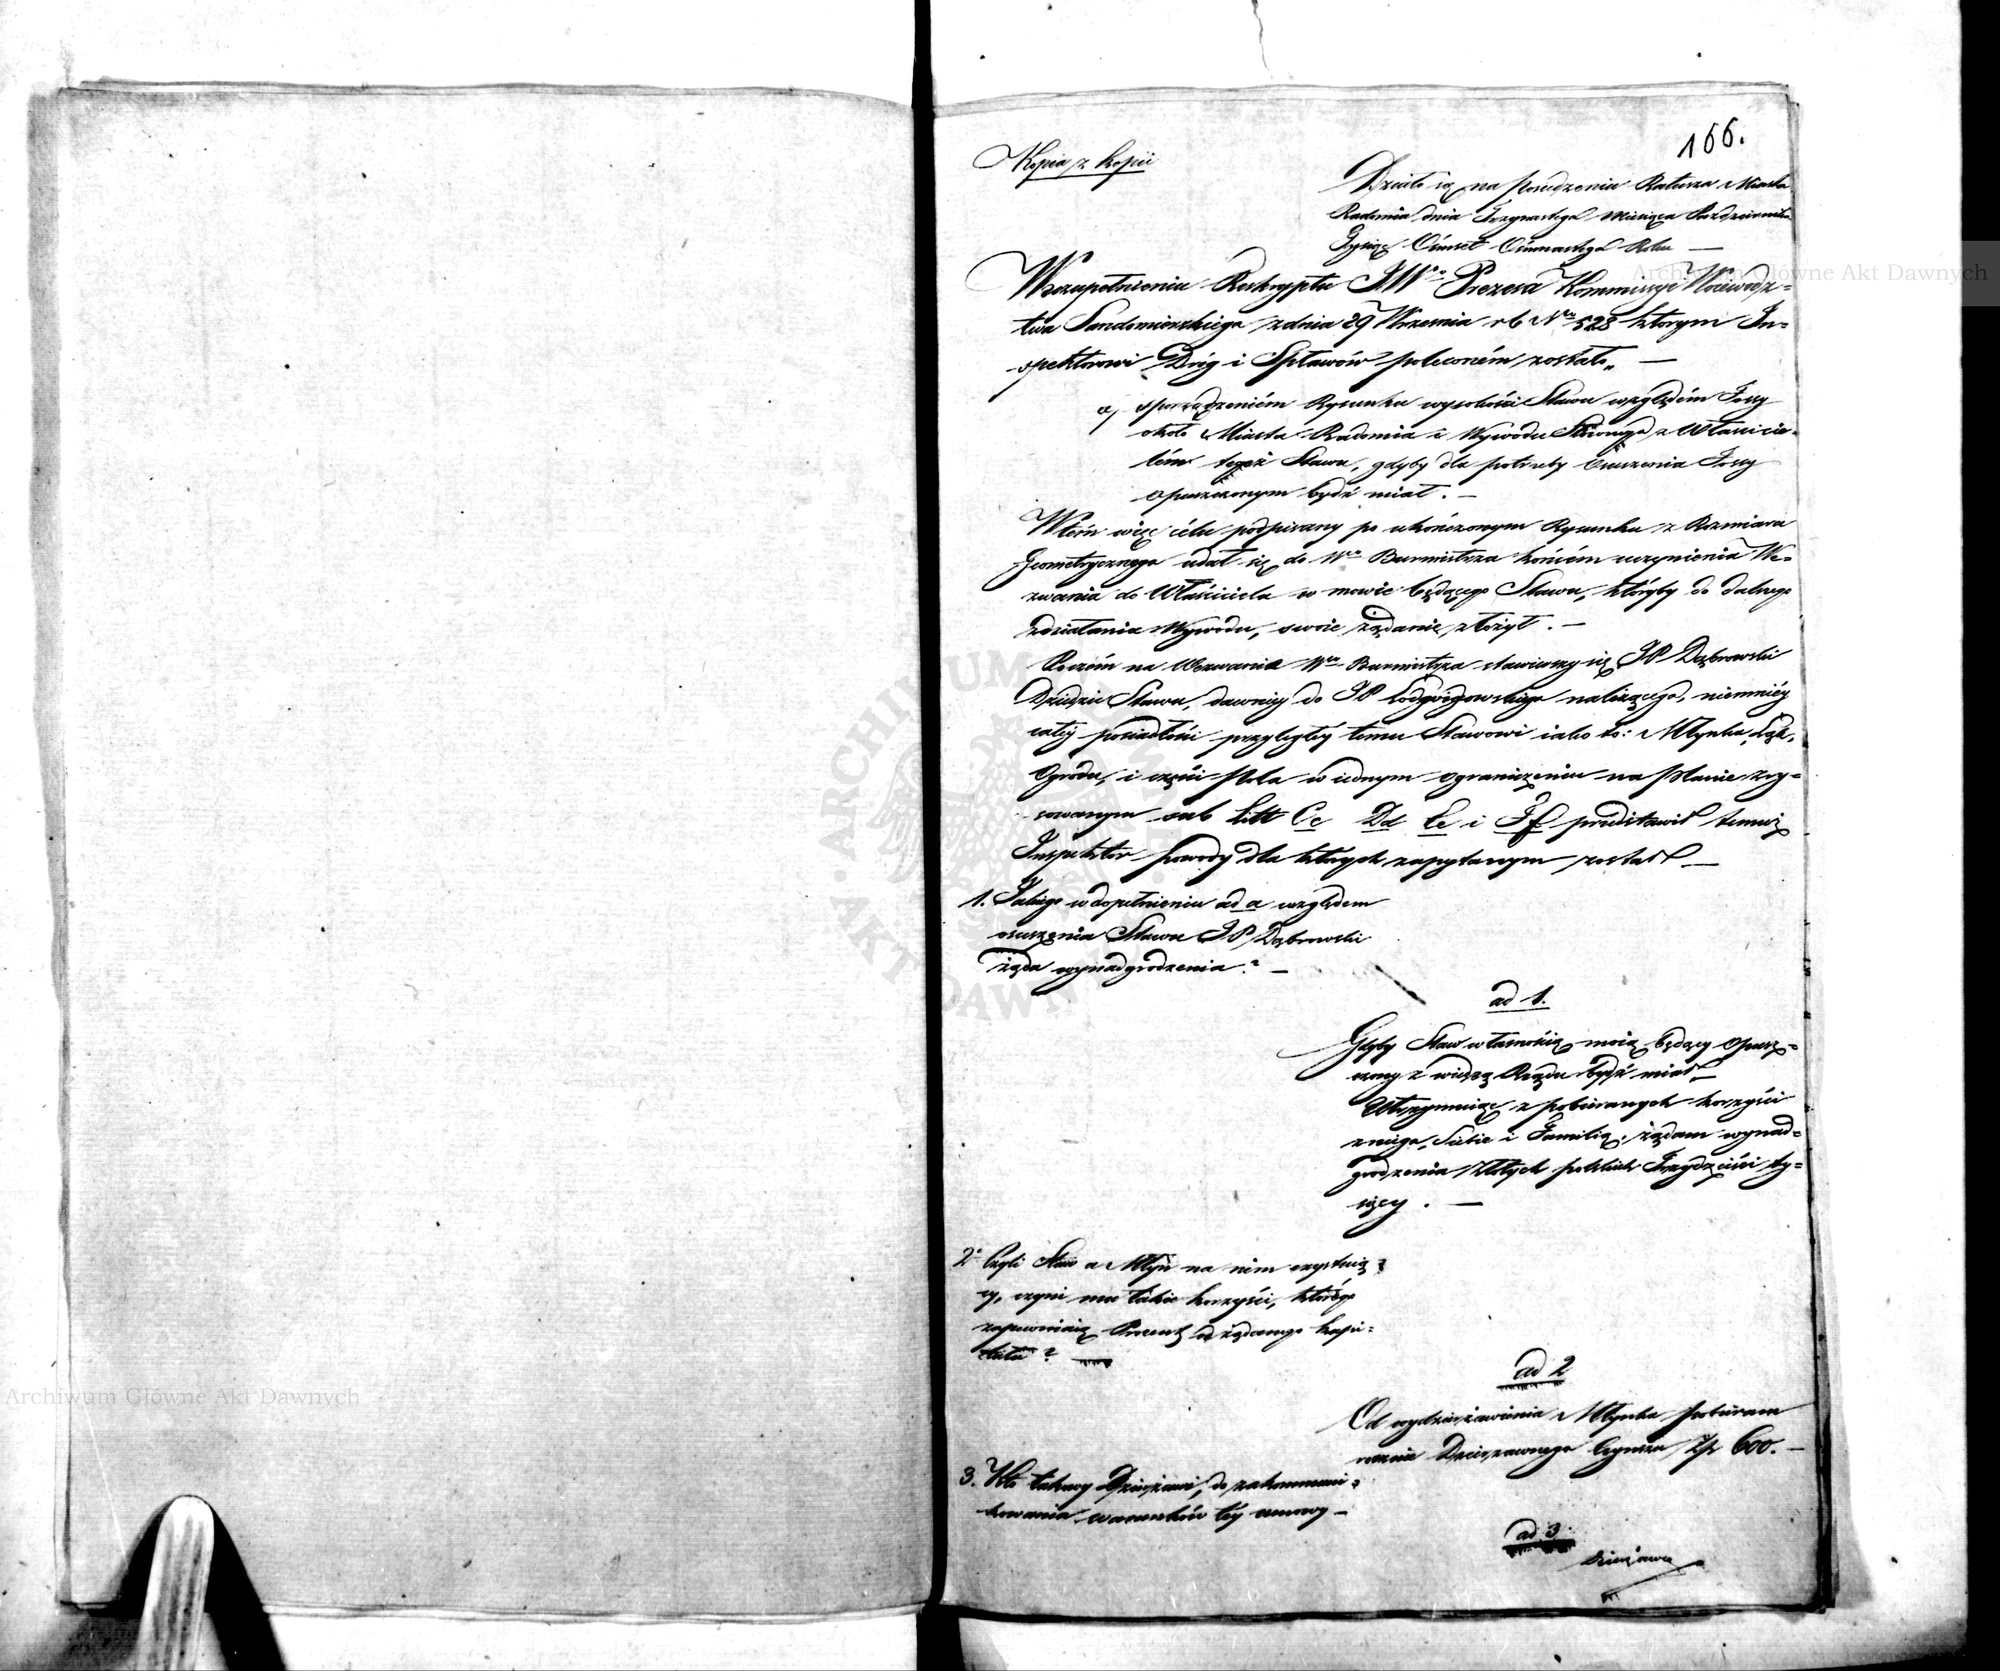 166.
Kopia z kopii
Działo się na posiedzeniu Ratusza Miasta
Radomia dnia Trzynastego Miesiąca Października
Tysiąc Ośmset Ośmnastego Roku —
W zzupełnieniu Reskryptu JWo Prezesa Kommissyi Wojewodz=
twa Sandomierskiego z dnia 29 Września r b No 528 którym In=
spektorowi Dróg i Spławów poleconém zostało„ —
a, sporządzeniém Rysunku wysokości Stawu względém Fossy
około Miasta Radomia i Wywodu Słownego z Właścicie=
lém tegoż Stawu, gdyby dla potrzeby Osuszenia Fossy
opuszczonym bydź miał. —
W tém więc célu podpisany po ukończonym Rysunku z Rozmiaru
Geometrycznego udał się do Wo Burmistrza końcém uczynienia We=
zwania do Właściciela w mowie będącego Stawu, któryby do dalszego
zdziałania Wywodu, swoie żądanie złożył. —
Poczém na Wezwanie Wo Burmistrza stawiwszy się JP Dąbrowski
Dziedzic Stawu, dawniey do JP należącego, niemniéy
całéy posiadłości przyległéy temu Stawowi iako to: Młynka, Łąk,
Ogrodu, i części Pola w iednym ograniczeniu na Planie zry=
sowanym sub Litt Cc Dd Ee i Ff przedstawił temuż
Inspektor powody dla których zapytanym został —
1. Jakiego w dopełnieniu ad a względem
osuszenia Stawu JP Dąbrowski
żąda wynadgrodzenia? —
ad 1.
Gdyby Staw własnością moią będący opusz=
czony z wiedzą Rządu bydź miał —
Utrzymuiąc z pobieranych korzyści
z niego, Siebie i Familią, żądam wynad=
grodzenia Złotych polskich Trzydzieści ty=
sięcy. —
2o Czyli Staw a Młyn na nim exystuią=
cy, czyni mu takie korzyści, którégo
zapewniaią Procent od żądanego kapi=
tału? —
ad 2
Od wydzierżawienia Młynka pobieram
rocznie Dzierzawnego Czynszu Zp 600. —
3. Kto takowy Dzierżawi, do zakommuni=
kowania warunków téy umowy —
ad 3.
Dzierżawca
Archiwum Główne Akt Dawnych
Archiwum Główne Akt Dawnych
ARCHIWUM GŁÓWNE AKT DAWNYCH